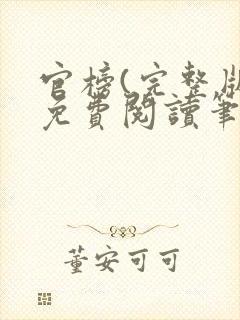 官榜(完整版
免費閱讀筆
董安可可